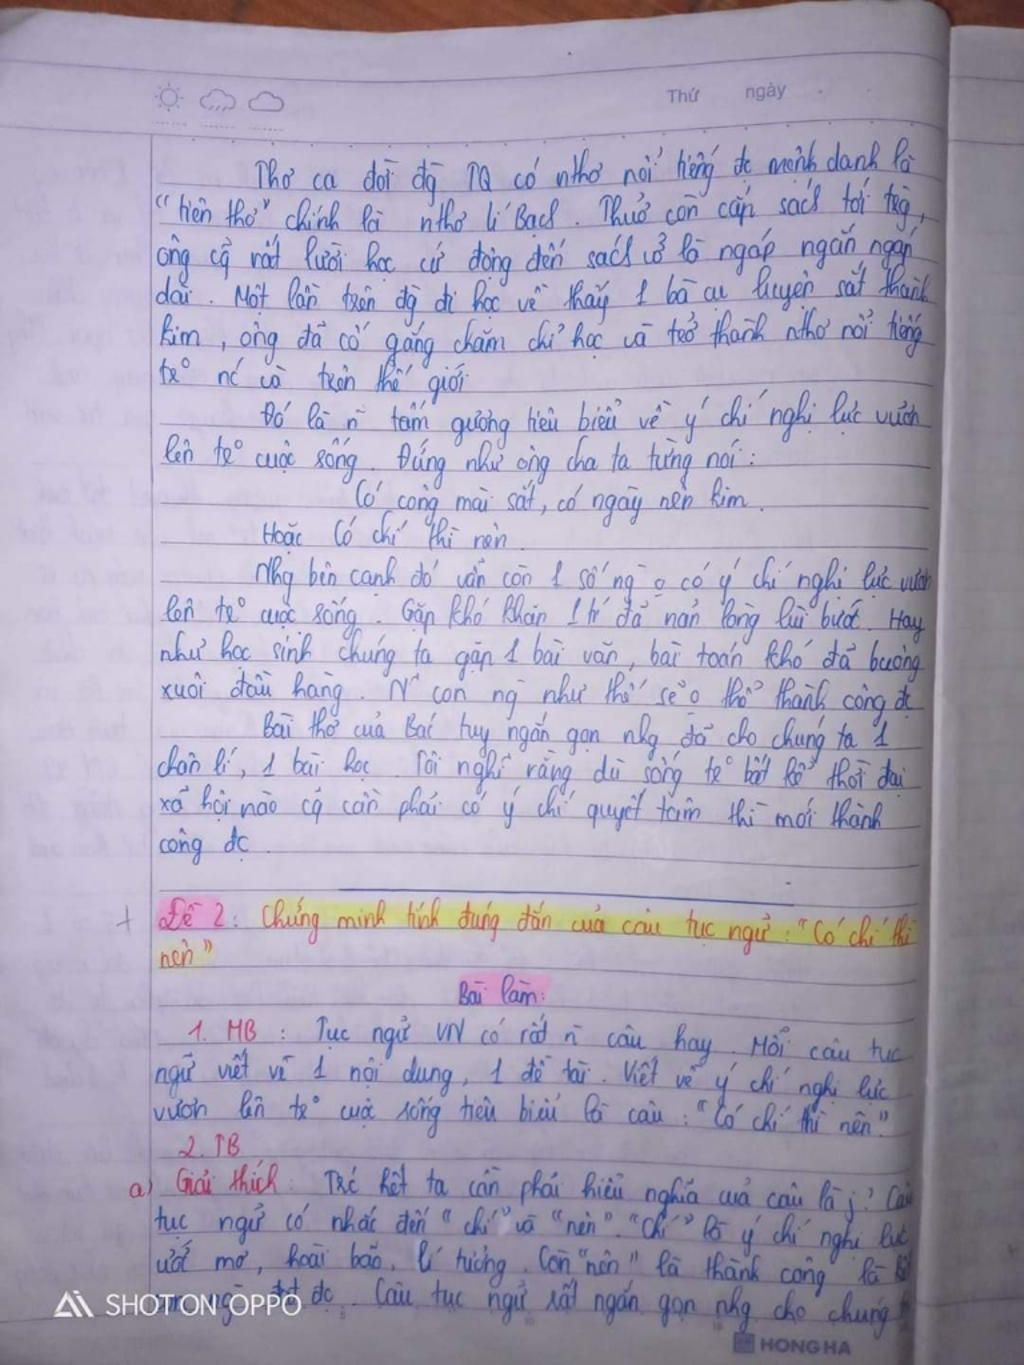 Thứ ngày
Thơ ca đời đg TQ có nthơ nổi tiếng đc mệnh danh là
"tiên thơ" chính là nthơ Lí Bạch. Thuở còn cắp sách tới trg,
ông cg rất lười học cứ động đến sách vở là ngáp ngắn ngáp
dài. Một lần trên đg đi học về thấy 1 bà cụ luyện sắt thành
kim, ông đã cố gắng chăm chỉ học và trở thành nthơ nổi tiếng
trº nc và trên thế giới
Đó là n̄ tấm gương tiêu biểu về ý chí nghị lực vươn
lên trº cuộc sống. Đúng như ông cha ta từng nói:
Có công mài sắt, có ngày nên kim.
Hoặc Có chí thì nên.
Nhg bên cạnh đó vẫn còn 1 số ng o có ý chí nghị lực vươn
lên trº cuộc sống. Gặp khó khăn 1 tí đã nản lòng lùi bước. Hay
như học sinh chúng ta gặp 1 bài văn, bài toán khó đã buông
xuôi đầu hàng. N~ con ng như thế sẽ o thể thành công đc
Bài thơ của Bác tuy ngắn gọn nhg đã cho chúng ta 1
chân lí, 1 bài học. Tôi nghĩ rằng dù sống trº bất kể thời đại
xã hội nào cg cần phải có ý chí quyết tâm thì mới thành
công đc
+ Đề 2: Chứng minh tính đúng đắn của câu tục ngữ: "Có chí thì
nên"
Bài làm:
1. MB: Tục ngữ VN có rất n̄ câu hay. Mỗi câu tục
ngữ viết về 1 nội dung, 1 đề tài. Viết về ý chí nghị lực
vươn lên trº cuộc sống tiêu biểu là câu: "Có chí thì nên"
2. TB
a) Giải thích: Trc hết ta cần phải hiểu nghĩa của câu là j? Câu
tục ngữ có nhắc đến "chí" và "nên". "Chí" là ý chí nghị lực
ước mơ, hoài bão, lí tưởng. Còn "nên" là thành công là
đạt đc. Câu tục ngữ rất ngắn gọn nhg cho chúng
SHOT ON OPPO
HONG HA